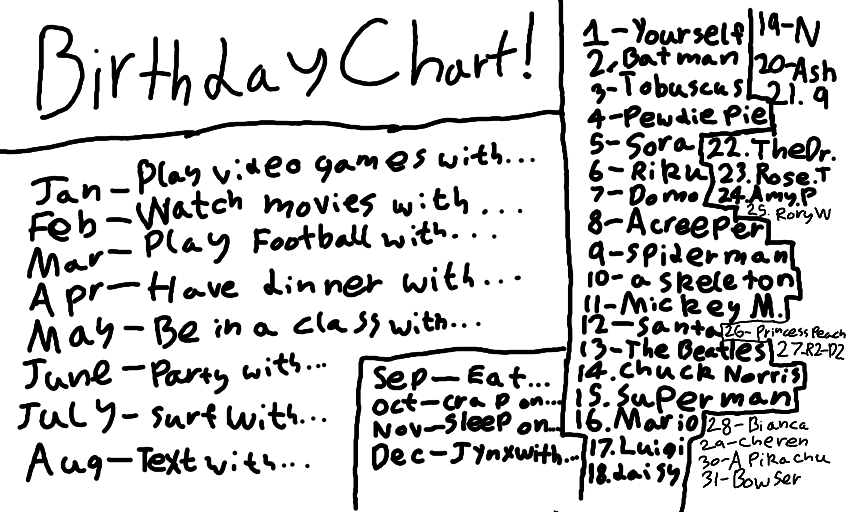 Birthday Chart!
Jan-Play video games with...
Feb-Watch movies with...
Mar-Play Football with...
Apr-Have dinner with...
May-Be in a class with...
June-Party with...
July-surf with...
Aug-Text with...
Sep-Eat...
Oct-crap on...
Nov-Sleep on...
Dec-Jynx with...
1-Yourself
2.Batman
3-Tobuscus
4-PewdiePie
5-Sora
6-Riku
7-Domo
8-A creeper
9-spiderman
10-a skeleton
11-Mickey M.
12-Santa
13-The Beatles
14.Chuck Norris
15.Superman
16.Mario
17.Luigi
18.daisy
19-N
20-Ash
21.9
22.The Dr.
23.Rose.T
24.Amy.P
25.Rory W
26-Princess Peach
27.R2-D2
28-Bianca
29-cheren
30-A Pikachu
31-Bowser